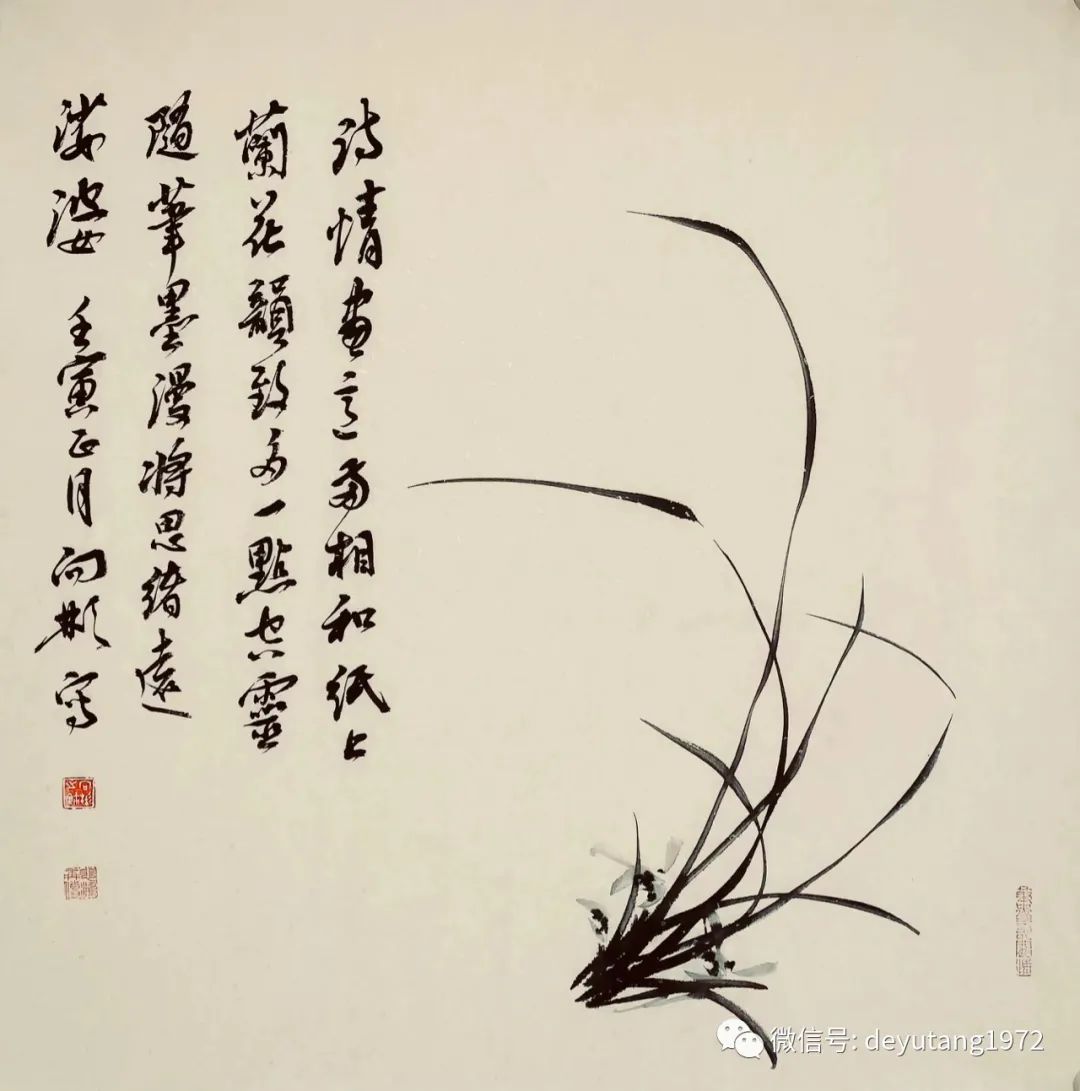 詩情畫意兩相和紙上
蘭花韻致多一點空靈
隨筆墨漫將思緒遠
娑婆 壬寅正月向彬寫
微信号: deyutang1972